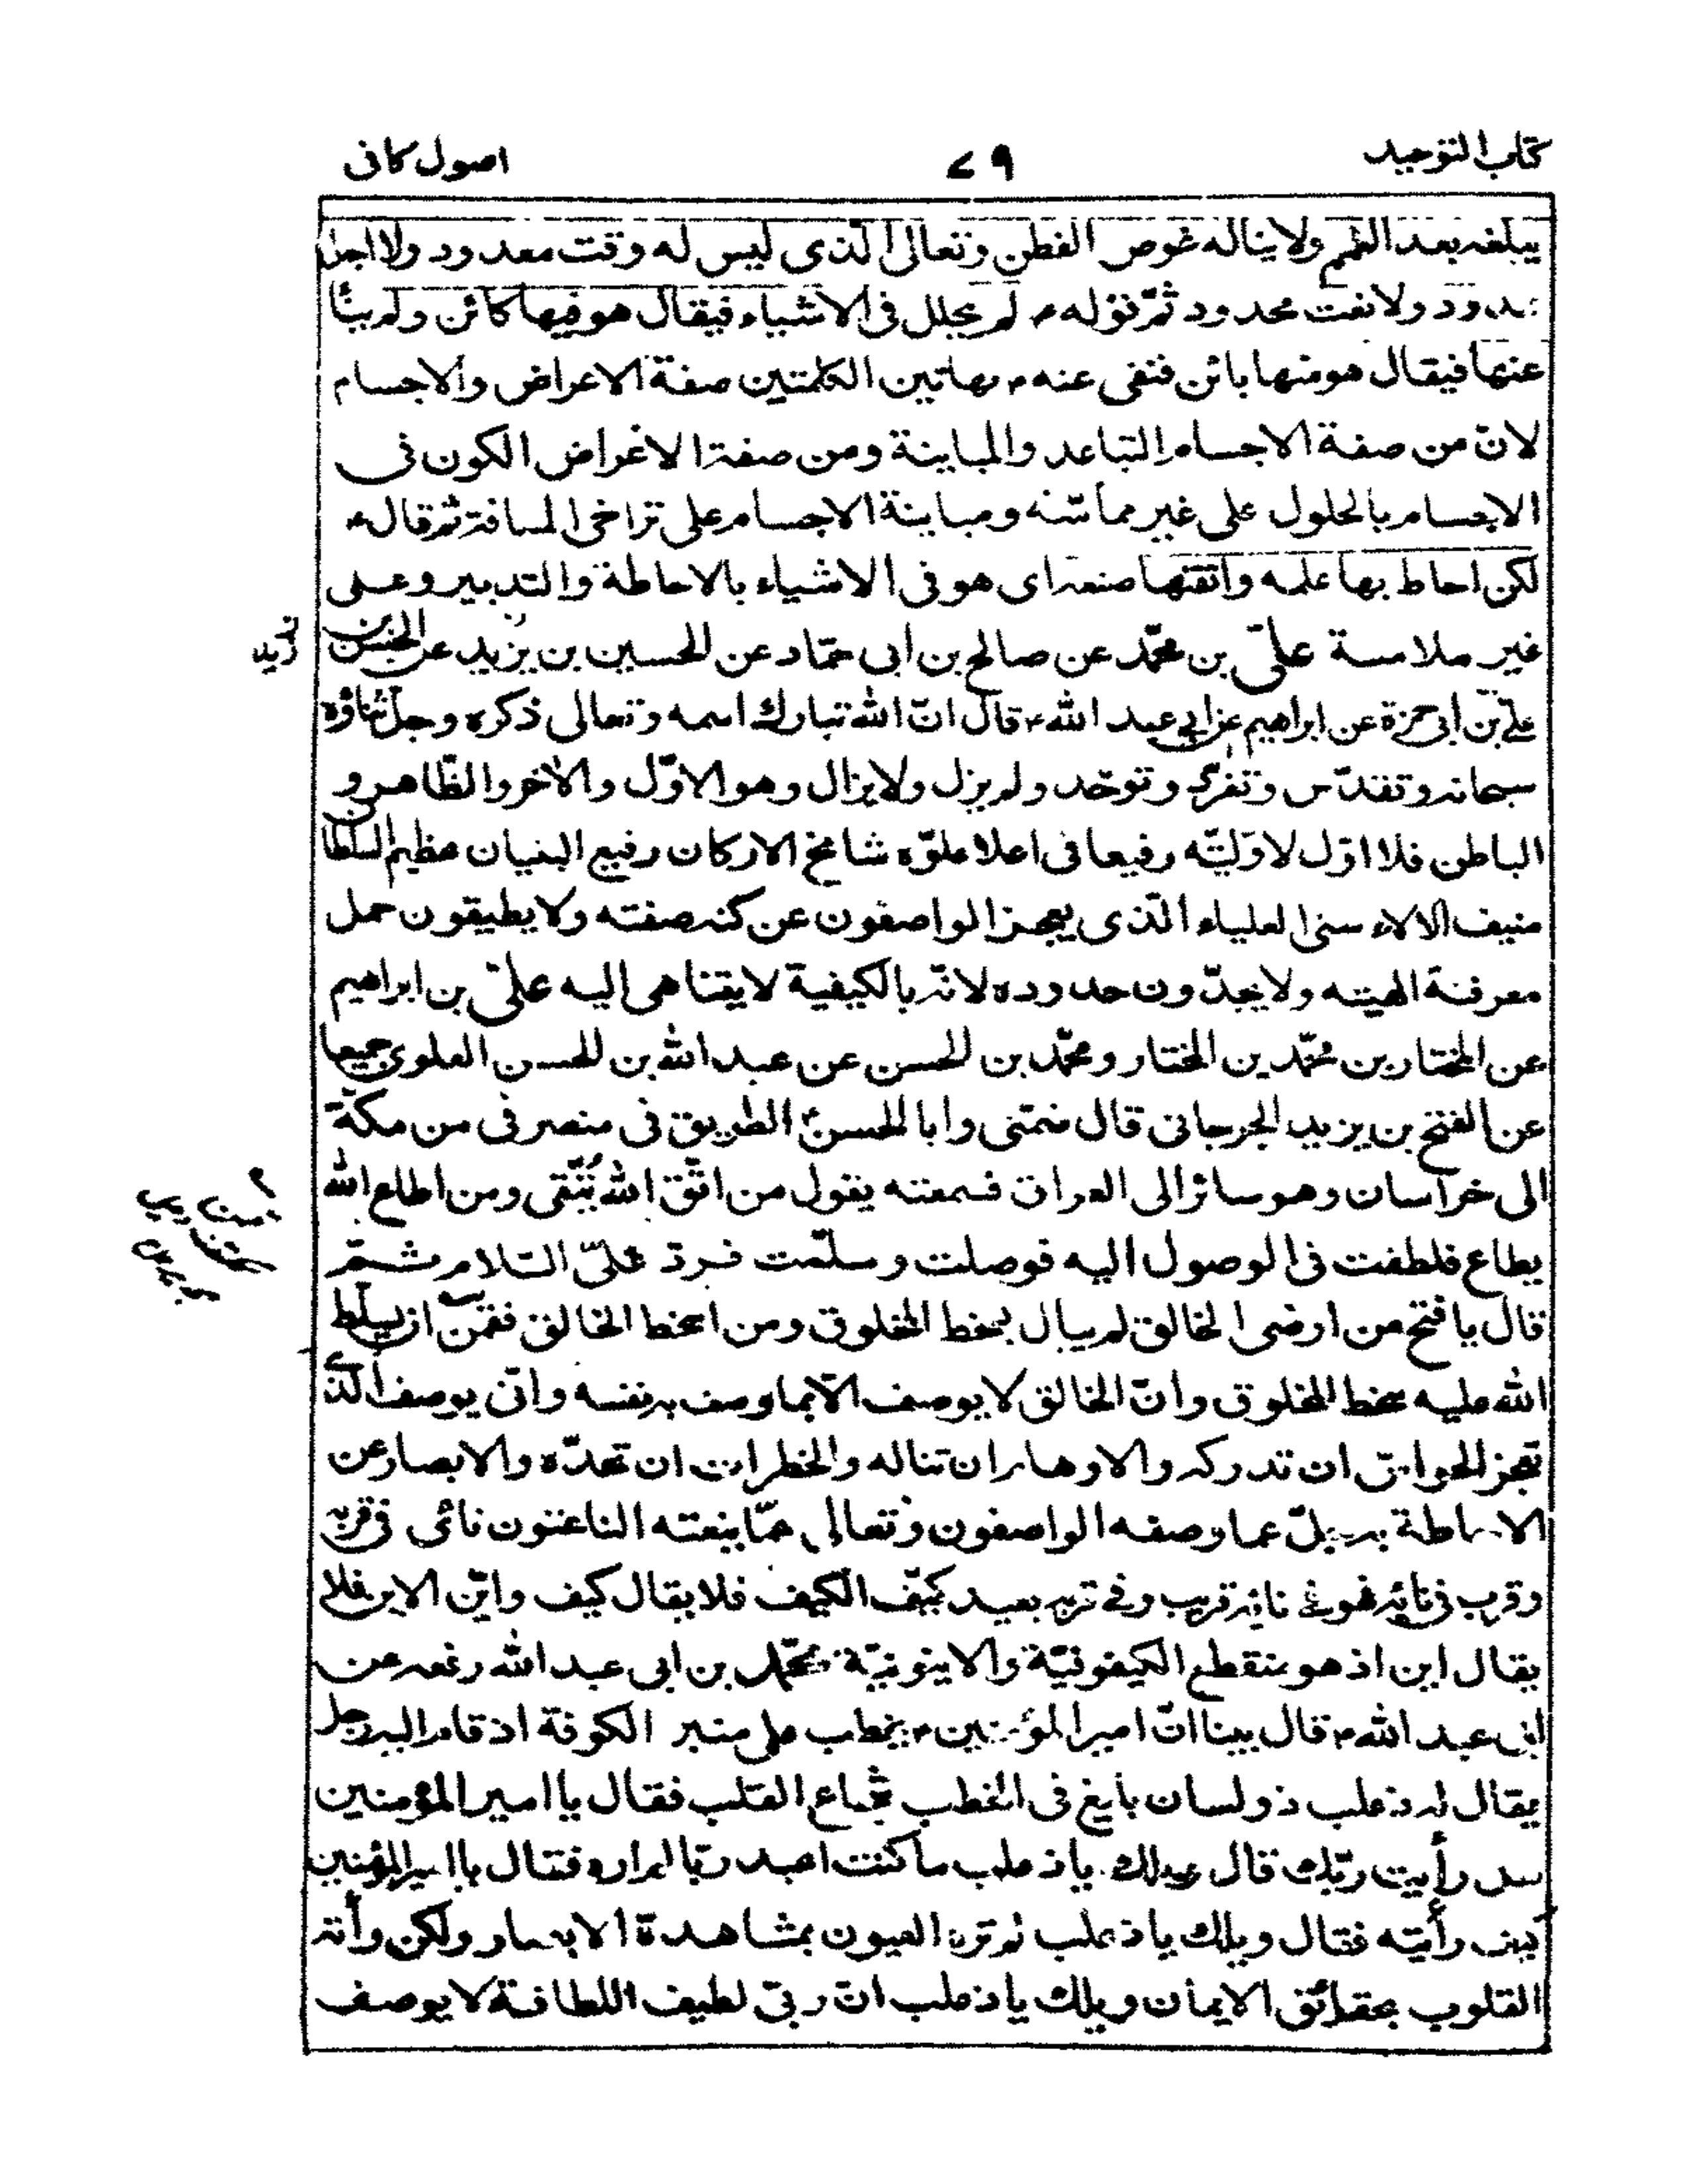 كتاب التوحيد
٧٩
اصول كافى
يبلغه بعد الهمم ولا يناله غوص الفطن وتعالى الّذى ليس له وقت معدود ولا اجل
ممدود ولا نعت محدود ثمّ قوله ع لم يحلل فى الاشياء فيقال هو فيها كائن ولم ينأ
عنها فيقال هو منها بائن فنفى عنه ع بهاتين الكلمتين صفة الاعراض والاجسام
لانّ من صفة الاجسام التباعد والمباينة ومن صفة الاعراض الكون فى
الاجسام بالحلول على غير مماسّة ومباينة الاجسام على تراخى المسافة ثم قال ع
لكن احاط بها علمه واتقنها صنعه اى هو فى الاشياء بالاحاطة والتدبير وعلى
غير ملامسة علىّ بن محمّد عن صالح بن ابى حمّاد عن الحسين بن يزيد عن الحسن بن
زيد
علىّ بن ابى حمزة عن ابراهيم عن ابى عبد الله ع قال انّ الله تبارك اسمه وتعالى ذكره وجلّ ثناؤه
سبحانه وتقدّس وتفرّد وتوحّد ولم يزل ولا يزال وهو الاوّل والآخر والظّاهر و
الباطن فلا اوّل لاوّليّته رفيعا فى اعلا علوّه شامخ الاركان رفيع البنيان عظيم السلطان
منيف الآلاء سنىّ العلياء الّذى يعجز الواصفون عن كنه صفته ولا يطيقون حمل
معرفة الهيته ولا يحدّون حدوده لانّه بالكيفية لا يتناهى اليه علىّ بن ابراهيم
عن المختار بن محمّد بن المختار ومحمّد بن الحسن عن عبد الله بن الحسن العلوى جميعا
عن الفتح بن يزيد الجرجانى قال ضمّنى وابا الحسن ع الطريق فى منصرفى من مكّة
الى خراسان وهو سائر الى العراق فسمعته يقول من اتّقى الله يُتّقى ومن اطاع الله
يطاع فلطفت فى الوصول اليه فوصلت وسلّمت فردّ علىّ السّلام ثمّ
قال يا فتح من ارضى الخالق لم يبال بسخط المخلوق ومن اسخط الخالق فقمن ان يسلّط
الله عليه سخط المخلوق وانّ الخالق لا يوصف الّا بما وصف به نفسه وانّى يوصف الّذى
تعجز الحواسّ ان تدركه والاوهام ان تناله والخطرات ان تحدّه والابصار عن
الاحاطة به جلّ عما وصفه الواصفون وتعالى عمّا ينعته الناعتون نائى فى قربه
وقرب فى نائيه فهو فى نائيه قريب وفى قربه بعيد كيّف الكيف فلا يقال كيف وايّن الاين فلا
يقال اين اذ هو منقطع الكيفوفيّة والاينونيّة محمّد بن ابى عبد الله رفعه عن
ابى عبد الله ع قال بينا انّ امير المؤمنين ع يخطب على منبر الكوفة اذ قام اليه رجل
يقال له ذعلب ذو لسان بليغ فى الخطب شجاع القلب فقال يا امير المؤمنين
هل رأيت ربّك قال ويلك يا ذعلب ما كنت اعبد ربّا لم اره فقال يا امير المؤمنين
كيف رأيته فقال ويلك يا ذعلب لم تره العيون بمشاهدة الابصار ولكن رأته
القلوب بحقائق الايمان ويلك يا ذعلب انّ ربّى لطيف اللطافة لا يوصف